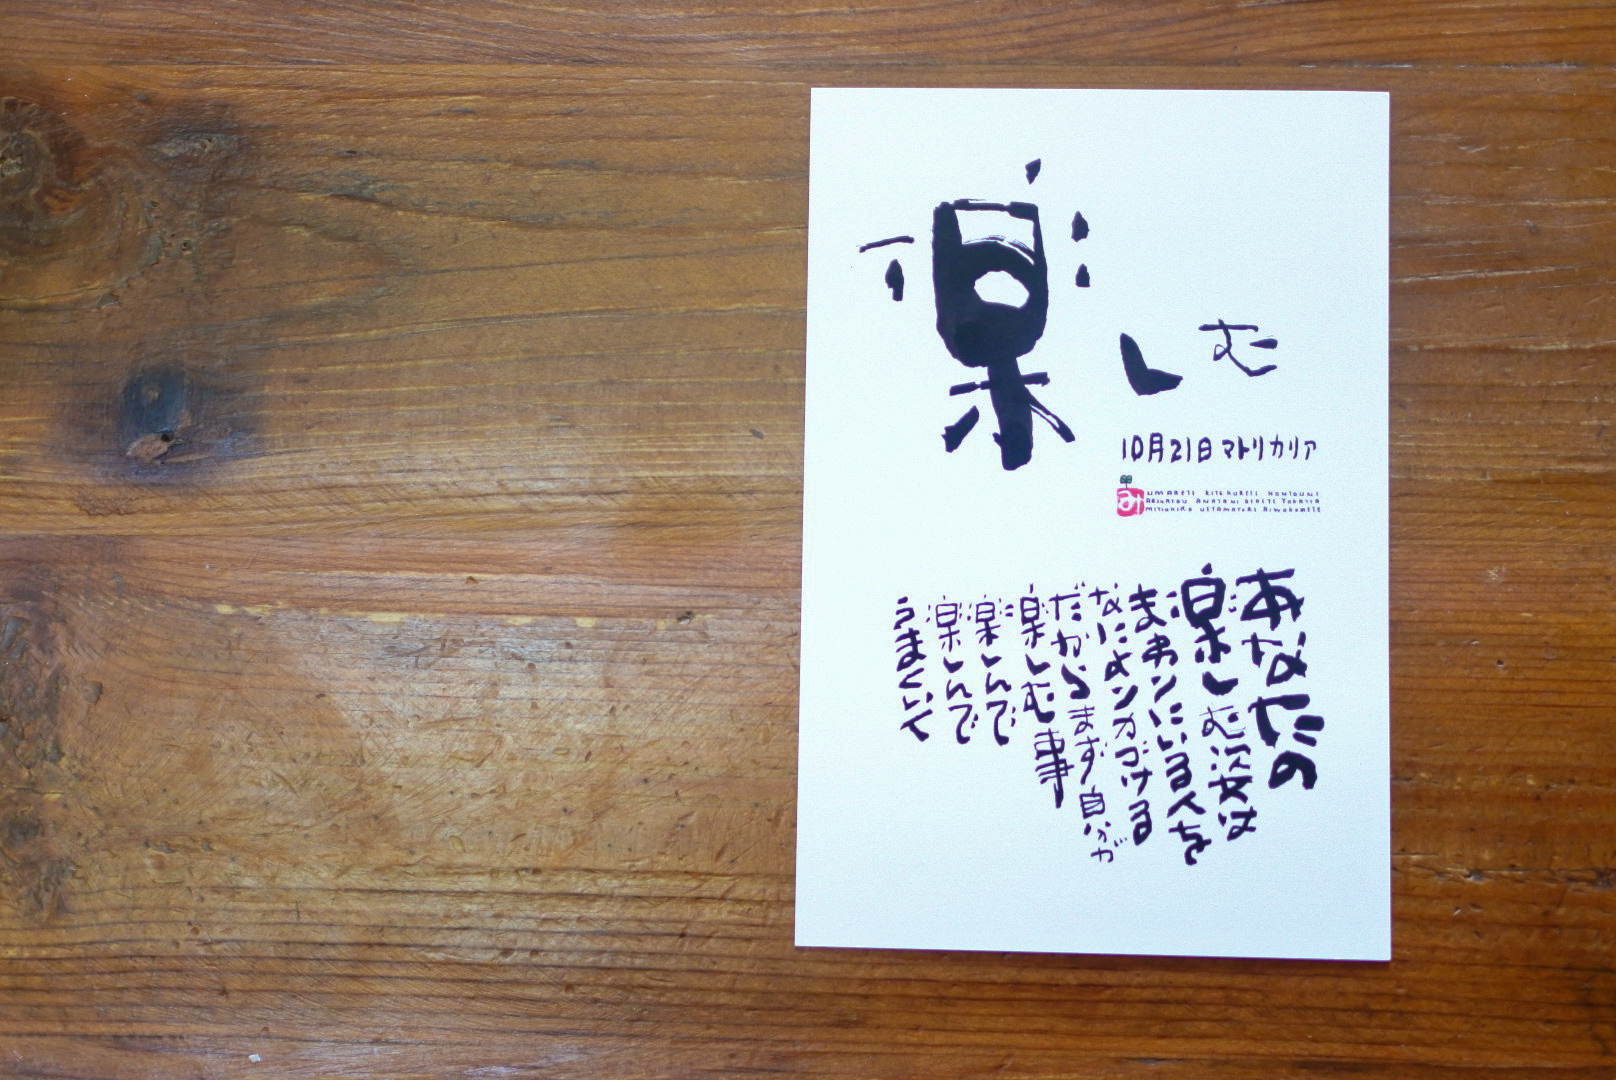 楽しむ
10月21日 マトリカリア
み
UMARETE KITEKURETE HONTOUNI
ARIGATOU ANATANI DEAETE YOKATTA
MITIUHIRO UETAMATURI AIWOKOMETE
あなたの
楽しむ姿は
まわりにいる人を
なによりカづける
だからまず自分が
楽しむ事
楽しんで
楽しんで
うまくいく